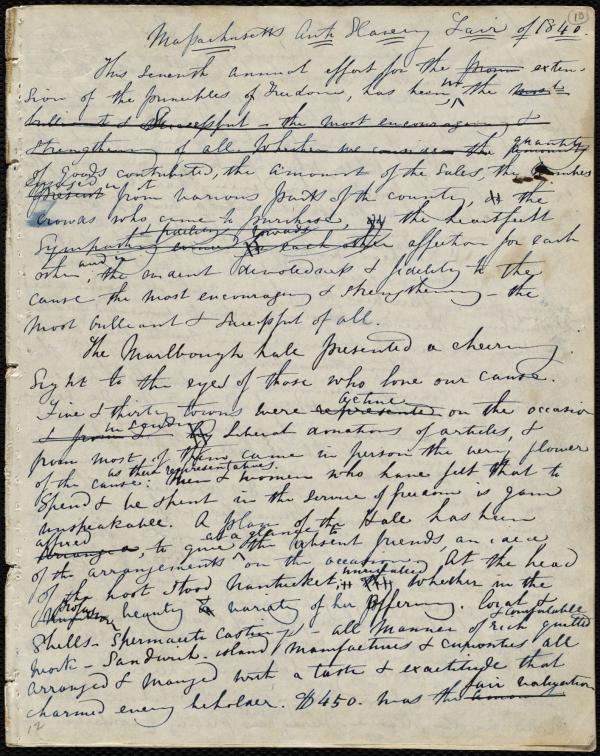 10
Massachusetts Anti Slavery Fair of 1840.
This seventh annual effort for the exten-
sion of the principles of Freedom, has been the most
brilliant & successful - the most encouraging &
strengthening of all. Whether we consider the quantity
of goods contributed, the amount of the sales, the
from various parts of the country, the
crowds who came to purchase, the heartfelt
sympathy each other affection for each
other, and the ardent devotedness & fidelity to the
cause the most encouraging & strengthening - the
most brilliant & successful of all.
The Marlborough hall presented a cheering
sight to the eyes of those who love our cause.
Five & thirty towns were represented active on the occasion
in sending liberal donations of articles, &
from most of them came in person the very flower
of the cause: as their representatives. Men & women who have felt that to
spend & be spent in the service of freedom is gain
unspeakable. A plan of the Hall has been
to give at a glance to the absent friends, an idea
of the arrangements on the occasion. At the head
of the host stood Nantucket, unrivalled whether in the
beauty & variety of her offering. Coral &
shells - Spermaceti castings, - all manner of rich & comfortable quilted
work - Sandwich-island manufactures & curiosities all
arranged & managed with a taste & exactitude that
charmed every beholder. $450. was the fair valuation
12